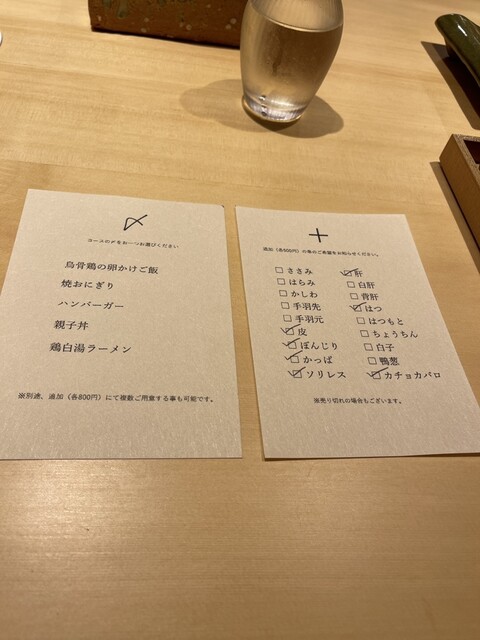 〆
コースの〆をお一つお選びください
烏骨鶏の卵かけご飯
焼おにぎり
ハンバーガー
親子丼
鶏白湯ラーメン
※別途、追加(各800円)にて複数ご用意する事も可能です。
+
追加(各500円)の串のご希望をお知らせください。
ささみ
はらみ
かしわ
手羽先
手羽元
皮
ぼんじり
かっぱ
ソリレス
肝
白肝
背肝
はつ
はつもと
ちょうちん
白子
鴨葱
カチョカバロ
※売り切れの場合もございます。